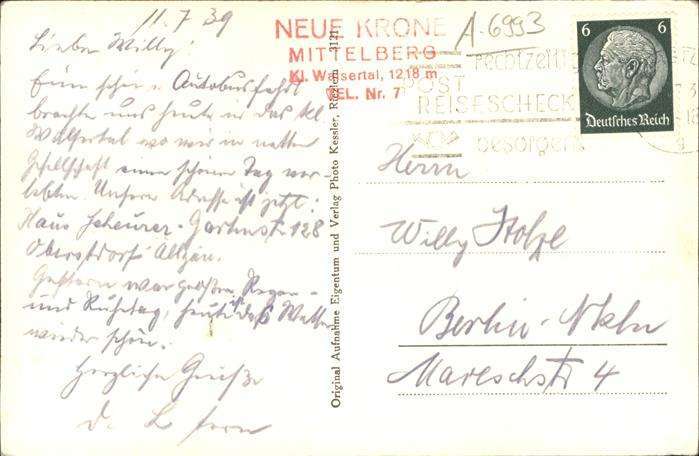 11.7.39
Lieber Willy!
Eine schöne Autobusfahrt
brachte uns heute in das kl.
Walsertal wo wir in netter
Gesellschaft einen schönen Tag ver-
lebten. Unsere Adresse ist jetzt:
Haus Scheurer - Gartenstr 128
Oberstdorf Allgäu.
Gestern war großer Regen-
und Ruhetag, heute ist das Wetter
wieder schön.
Herzliche Grüße
NEUE KRONE
MITTELBERG
Kl. Walsertal, 1218 m
TEL. Nr. 7
A-6993
rechtzeitig
POST
REISESCHECK
besorgen
6 6
Deutsches Reich
Original Aufnahme Eigentum und Verlag Photo Kessler, Riezlern 3121
Herrn
Willy Stolze
Berlin-Nkln
Mareschstr 4